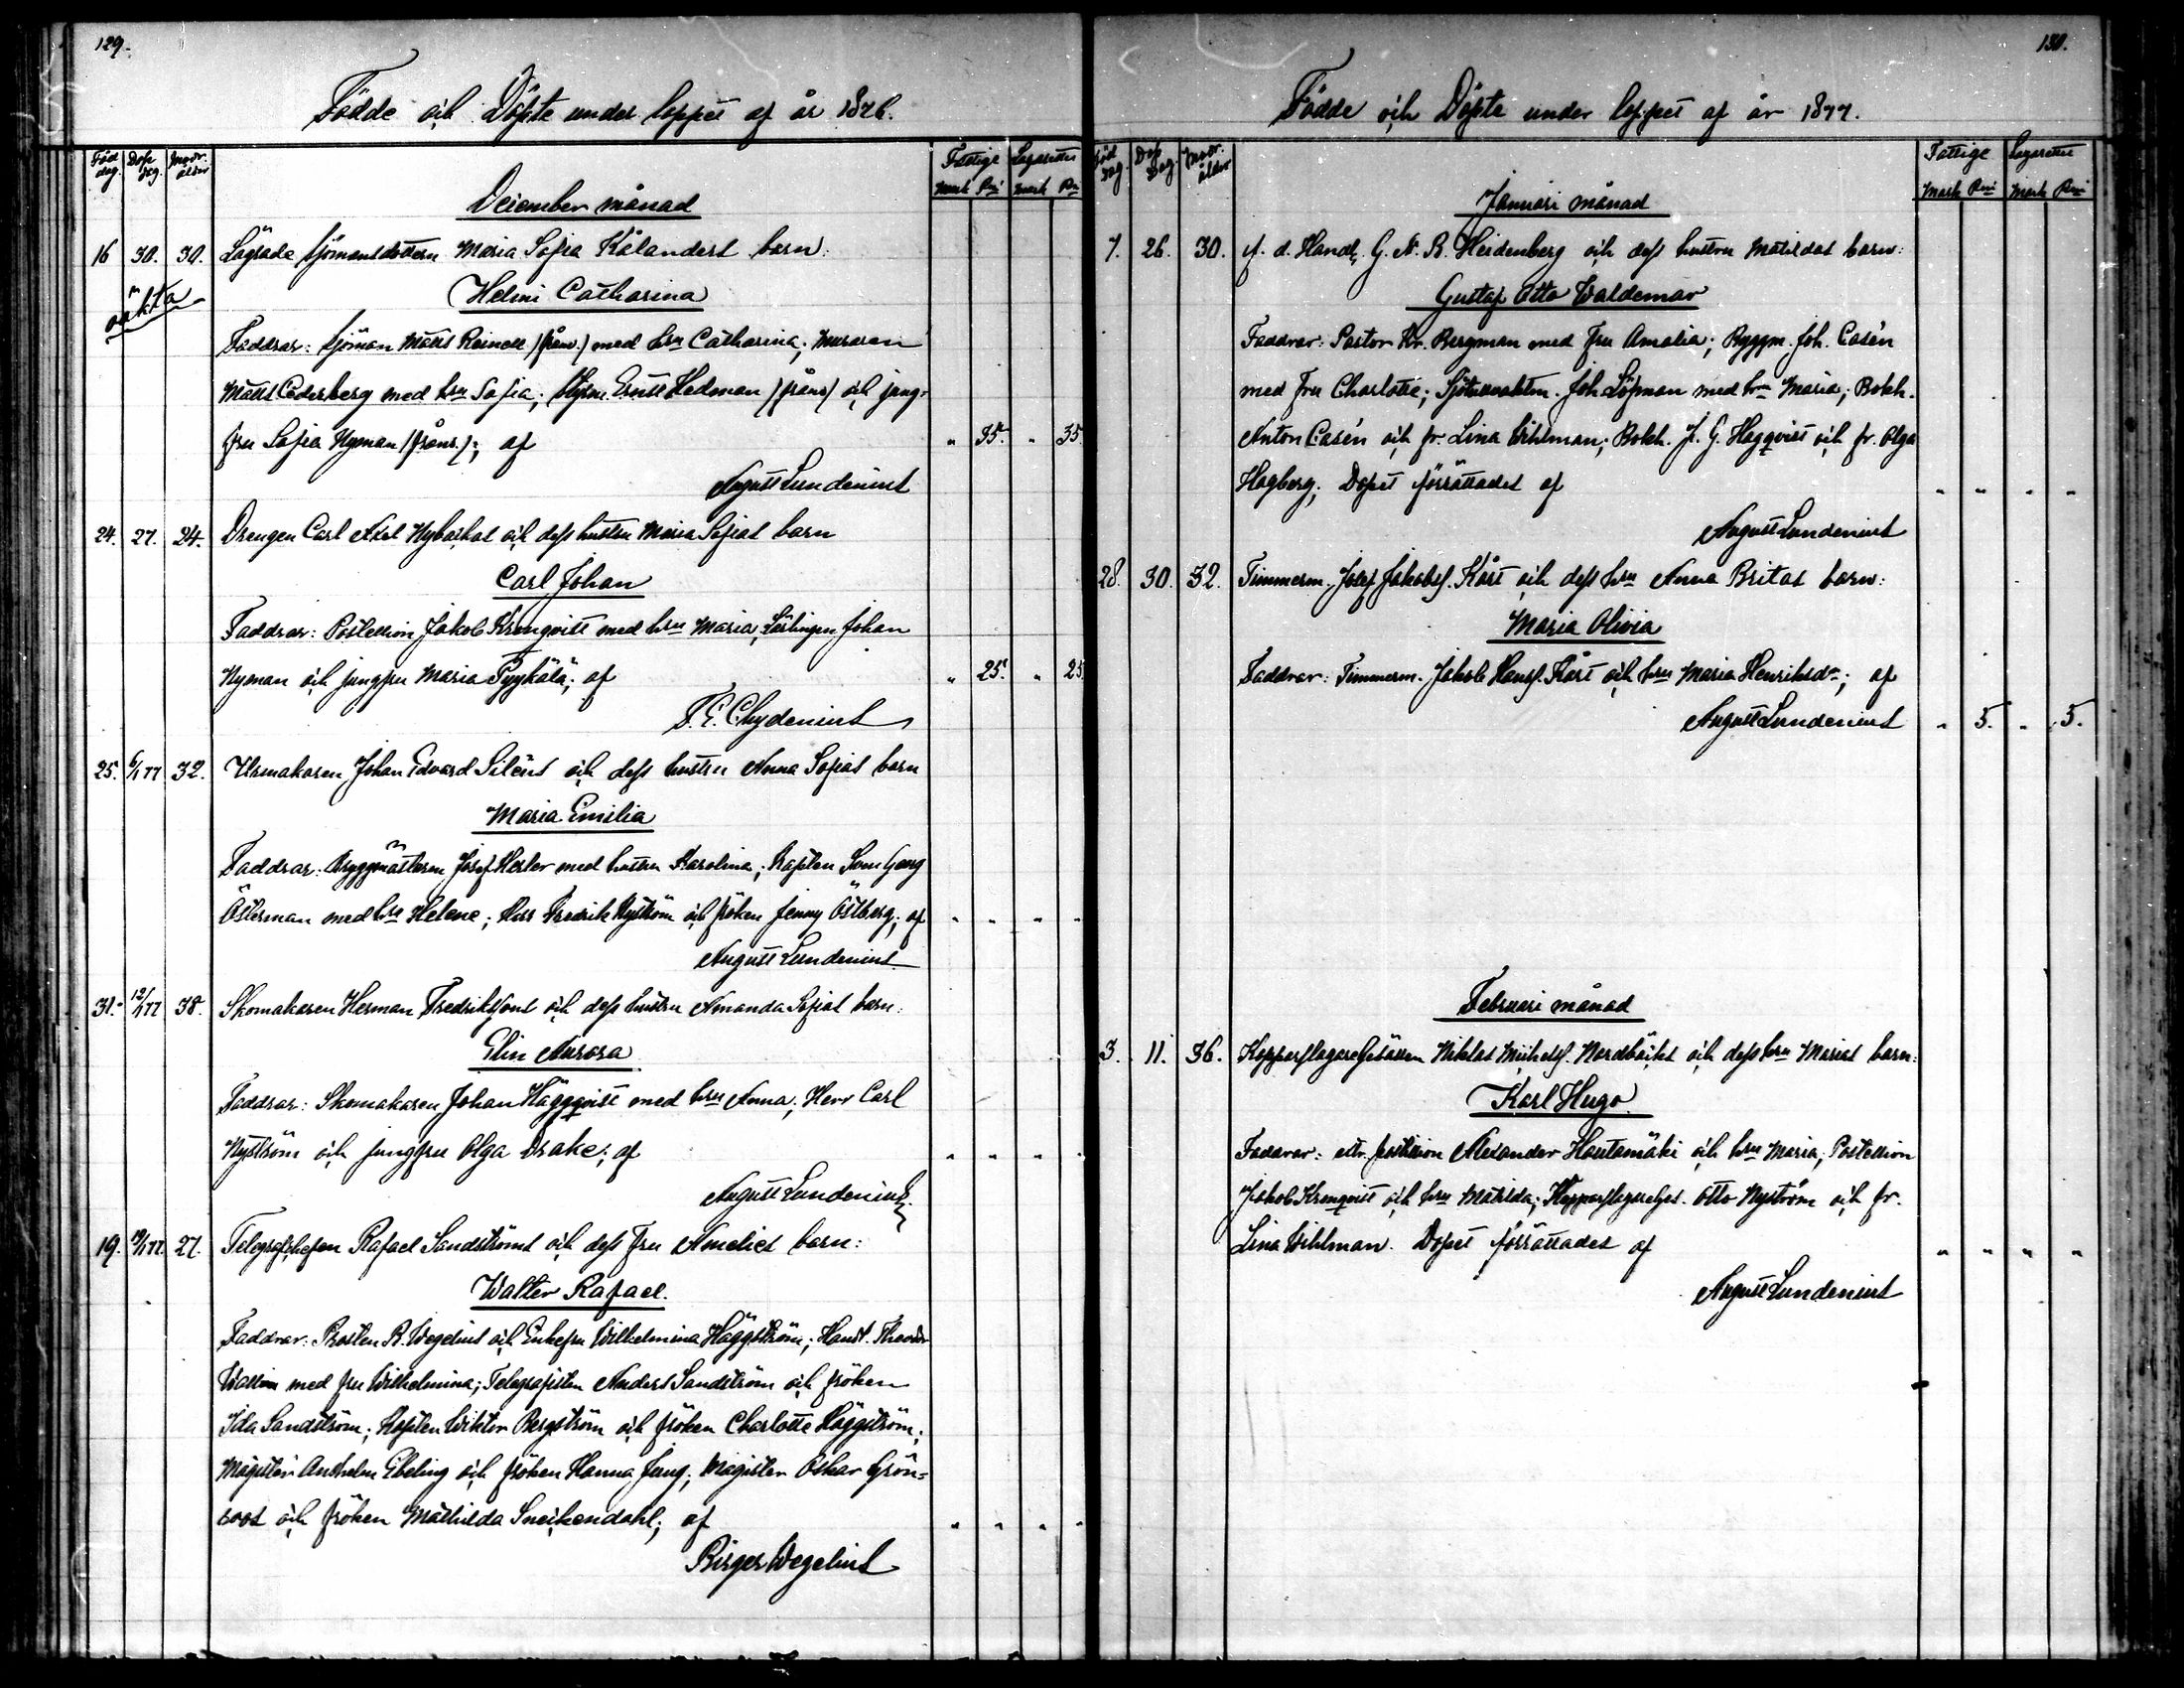 129.
Födde och Döpte under loppet af år 1876.
Föd dag. Dop dag. Modr. ålder Fattige Lazarettet
Mark Pni Mark Pni
December månad
16 30. 30. Lägrade sjömansdottern Maria Sofia Kålanders barn:
oäkta Helmi Catharina
Faddrar: Sjöman Matts Reinell /frånv./ med hru Catharina; Muraren
Matts Cederberg med hru Sofia; Styrm. Ernst Hedman /frånv./ och jung-
fru Sofia Nyman /frånv./; af " 35. " 35.
August Lundenius
24. 27. 24. Drengen Carl Axel Nybackas och dess hustru Maria Sofias barn
Carl Johan
Faddrar: Postillion Jakob Krongvist med hru Maria; Lärlingen Johan
Nyman och jungfru Maria Pyykölä; af " 25. " 25.
F. E. Chydenius
25. 6/1 77 32. Urmakaren Johan Edvard Siléns och dess hustru Anna Sofias barn
Maria Emilia
Faddrar: Bryggmästaren Josef Herler med hustru Karolina; Kapten Sven Georg
Österman med hru Helene; Herr Fredrik Nyström och fröken Jenny Östberg; af " " " "
August Lundenius
31. 12/1 77 38. Skomakaren Herman Fredriksons och dess hustru Amanda Sofias barn:
Elin Aurora
Faddrar: Skomakaren Johan Häggqvist med hru Anna; Herr Carl
Nyström och jungfru Olga Drake; af " " " "
August Lundenius
19. 19/1 77. 27. Telegrafchefen Rafael Sandströms och dess fru Amelies barn:
Walter Rafael.
Faddrar: Prosten B. Wegelius och Enkefru Wilhelmina Häggström; Handl. Theodor
Wallin med fru Wilhelmina; Telegrafisten Anders Sandström och fröken
Ida Sandström; Kapten Wiktor Bergström och fröken Charlotte Häggström;
Magister Anshelm Ebeling och fröken Hanna Jung; Magister Oskar Grön-
roos och fröken Mathilda Sneckendahl; af " " " "
Birger Wegelius
130.
Födde och Döpte under loppet af år 1877.
Föd dag. Dop Dag. Modr. ålder Fattige Lazarettet
Mark Pni Mark Pni
Januari månad
7. 26. 30. f. d. Handl. G. A. B. Heidenberg och dess hustru Matildas barn:
Gustaf Otto Waldemar
Faddrar: Pastor Kr. Bergman med Fru Amalia; Byggm. Joh. Casén
med Fru Charlotte; Sjötullvaktm. Joh. Löfman med hru Maria; Bokh.
Anton Casén och fr. Lina Wihlman; Bokh. J. G. Hagqvist och fr. Olga
Hagberg; Dopet förrättades af " " " "
August Lundenius
28. 30. 32. Timmerm. Josef Jakobss. Kårt och dess hru Anna Britas barn:
Maria Olivia
Faddrar: Timmerm. Jakob Hanss. Kårt och hru Maria Henriksdr; af
August Lundenius " 5. " 5.
Februari månad
3. 11. 36. Kopparslagaregesällen Niklas Michelss. Nordbäcks och dess hru Marias barn:
Karl Hugo.
Faddrar: extr. postillion Alexander Hautamäki och hru Maria; Postillion
Jakob Krongvist och hru Matilda; Kopparslagareges. Otto Nyström och fr.
Lina Wihlman. Dopet förrättades af " " " "
August Lundenius